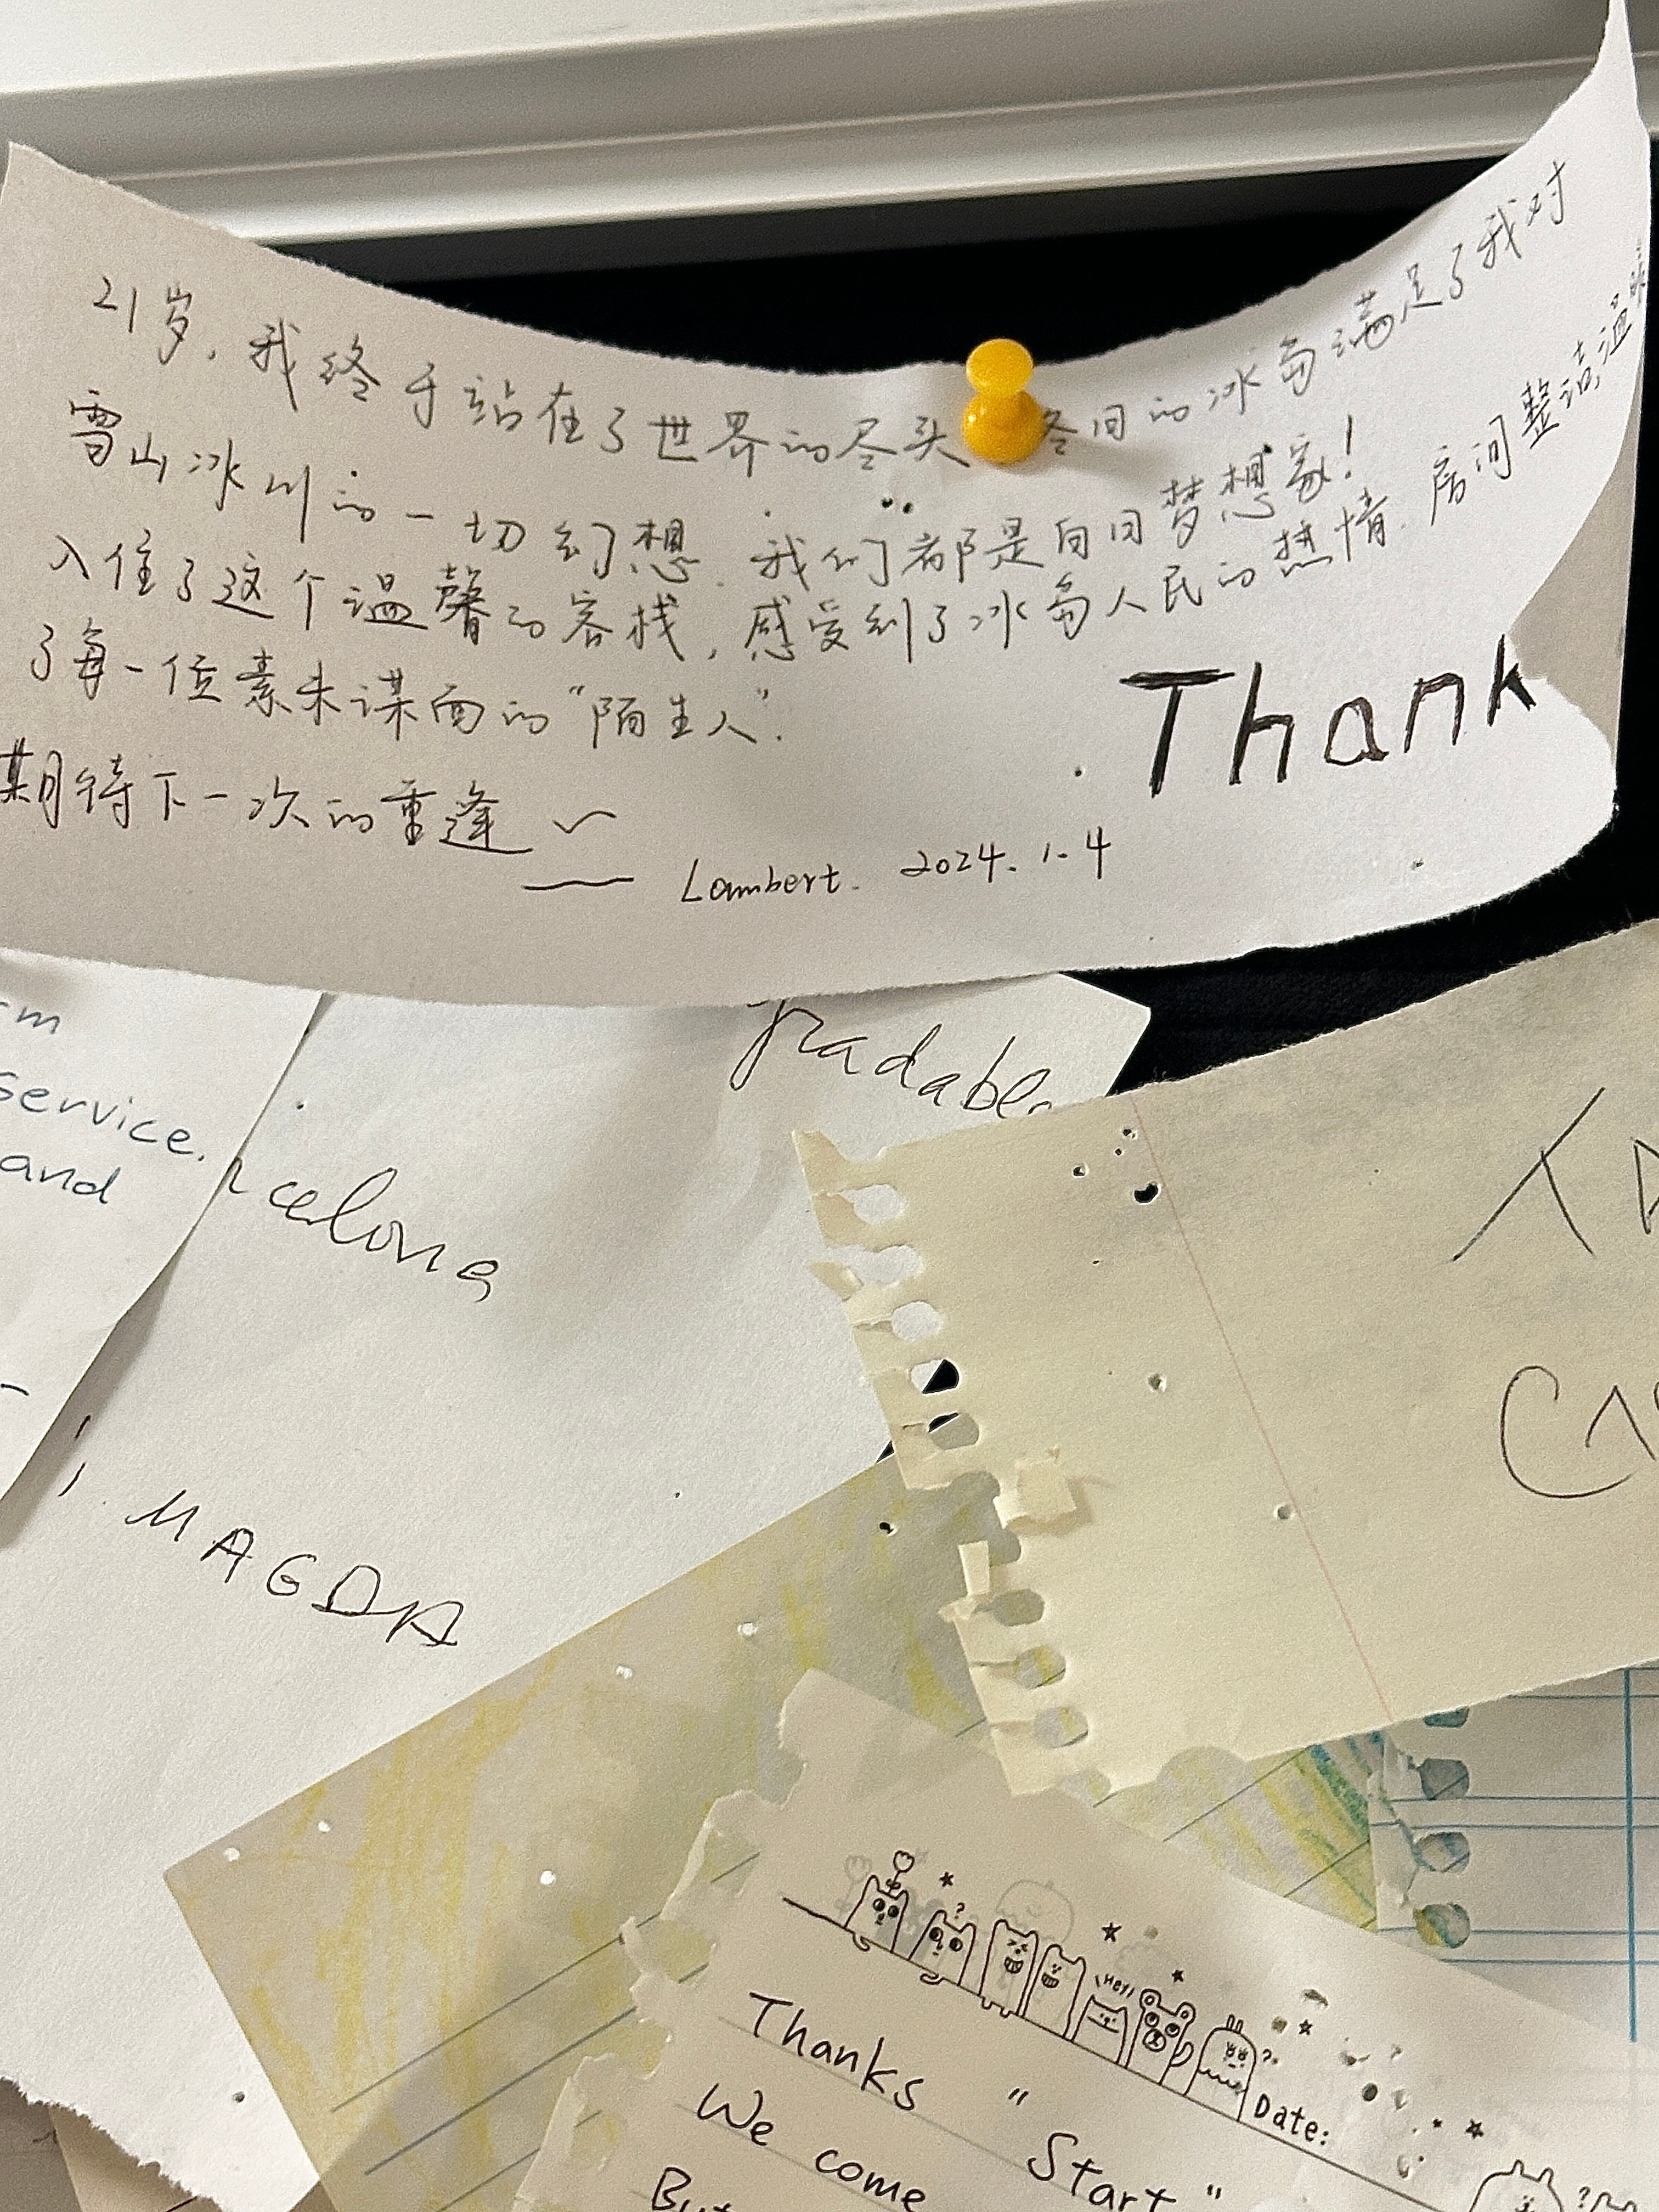 21岁,我终于站在了世界的尽头 冬日的冰岛满足了我对
雪山冰川的一切幻想.我们都是白日梦想家!
入住了这个温馨的客栈,感受到了冰岛人民的热情.房间整洁,温暖
了每一位素未谋面的“陌生人”.
期待下一次的重逢~
—— Lambert. 2024.1.4
Thank
service.
and
MAGDA
Hey!
Date:
Thanks "Start"
We come